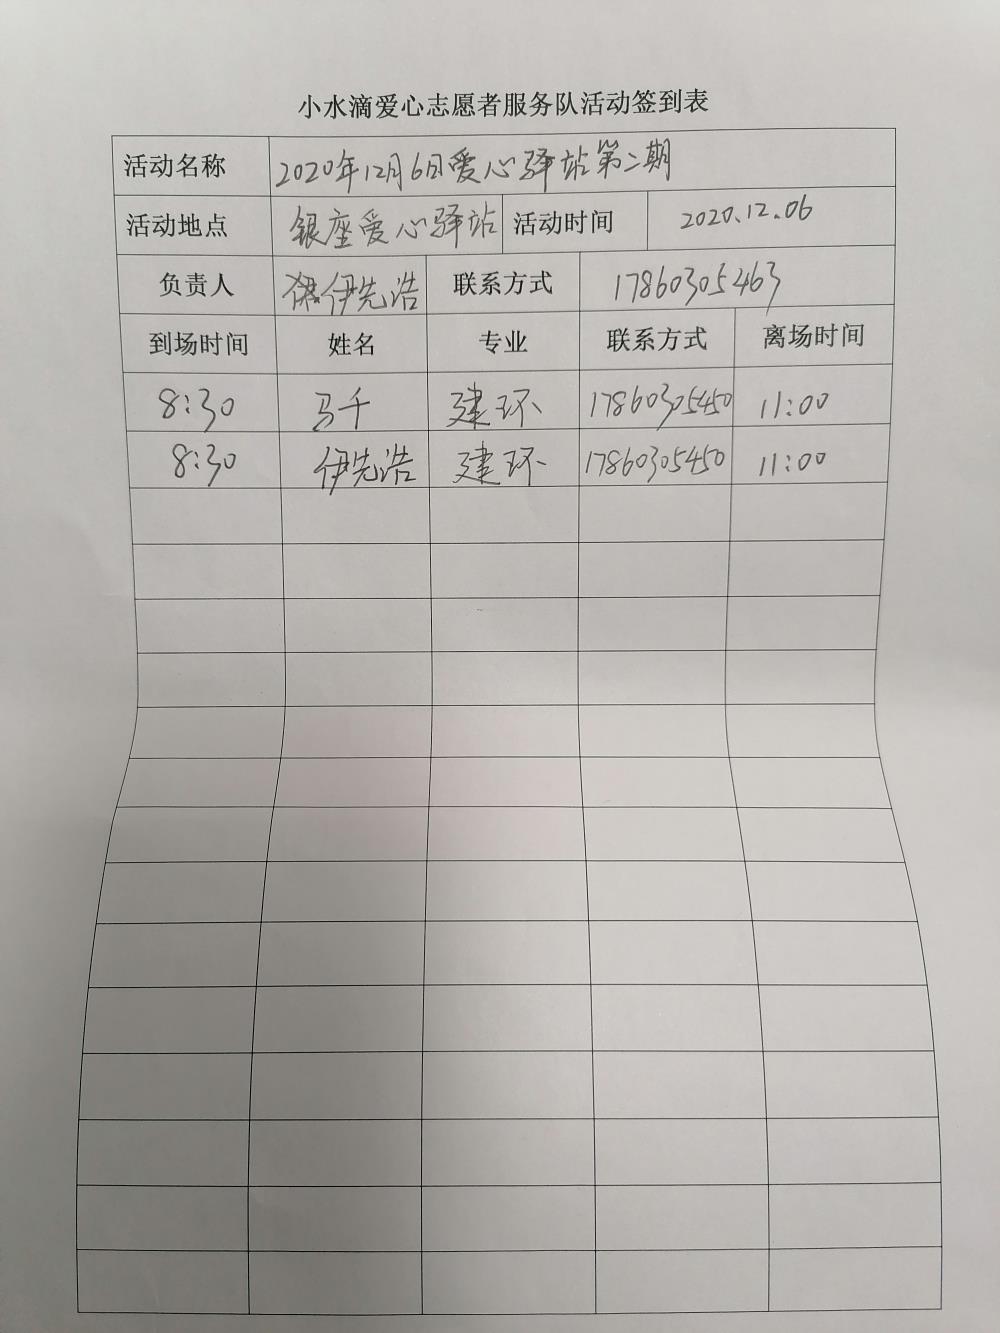 小水滴爱心志愿者服务队活动签到表
活动名称 2020年12月6日爱心驿站第二期
活动地点 银座爱心驿站 活动时间 2020.12.06
负责人 伊先浩 联系方式 17860305463
到场时间 姓名 专业 联系方式 离场时间
8:30 马千 建环 17860305450 11:00
8:30 伊先浩 建环 17860305450 11:00